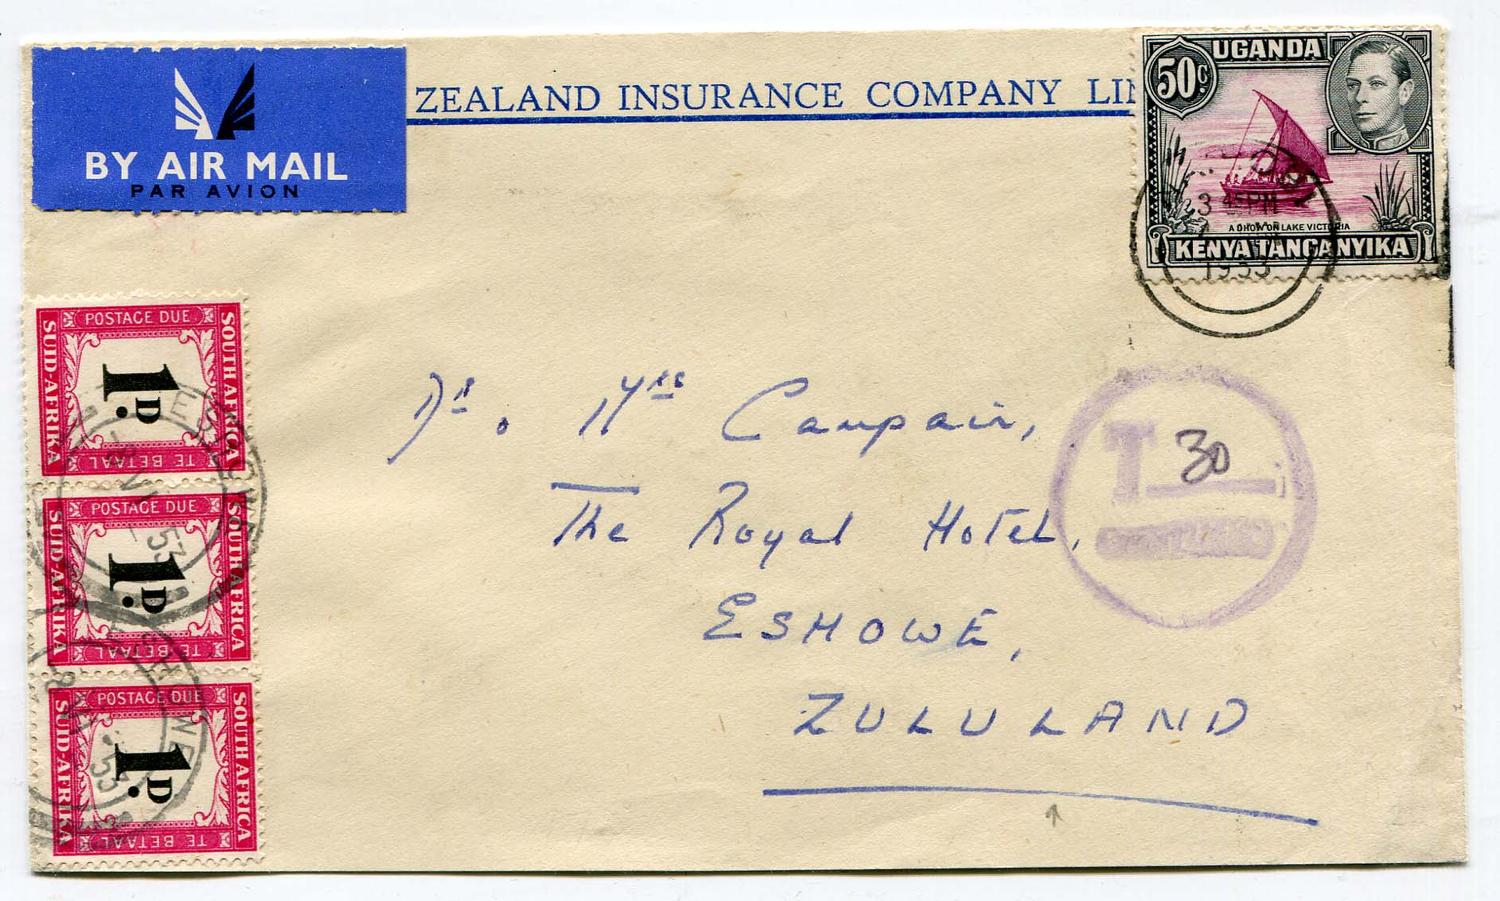 BY AIR MAIL
PAR AVION
ZEALAND INSURANCE COMPANY LI
UGANDA
50c
3 45PM
1953
A DHOW ON LAKE VICTORIA
KENYA TANGANYIKA
POSTAGE DUE
SUID-AFRIKA
SOUTH AFRICA
1.D
TE BETAAL
ESHOWE
8 VI 53
POSTAGE DUE
SUID-AFRIKA
SOUTH AFRICA
1.D
TE BETAAL
POSTAGE DUE
SUID-AFRIKA
SOUTH AFRICA
1.D
TE BETAAL
ESHOWE
Campair,
The Royal Hotel,
ESHOWE,
ZULULAND
T 30